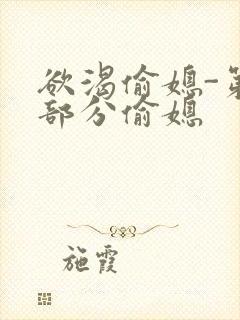 欲渴偷媳-第
部分偷媳
施霞